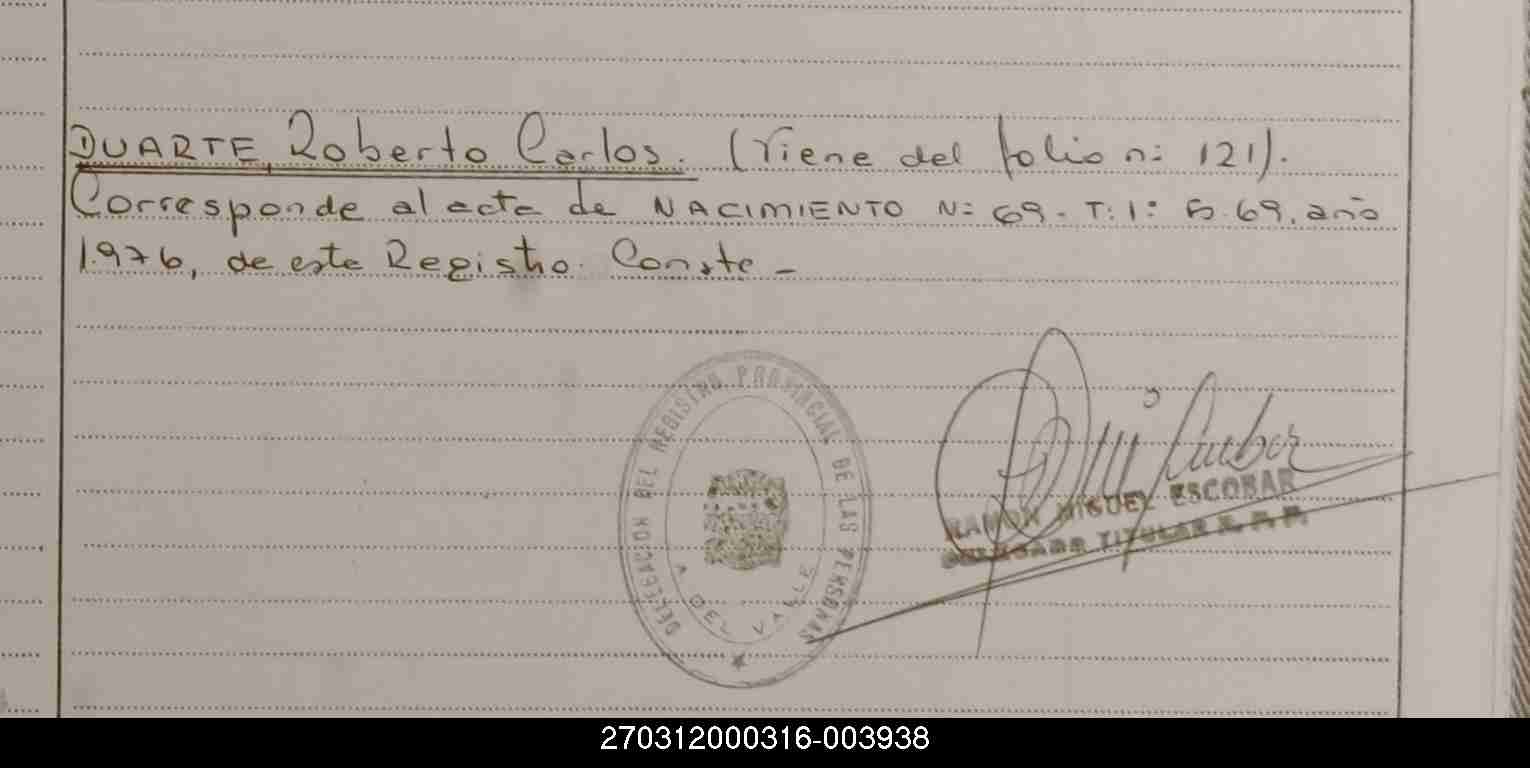 DUARTE, Roberto Carlos. (Viene del folio n: 121).
Corresponde al acta de NACIMIENTO N: 69. T: 1: F. 69. año
1.976, de este Registro. Conste -
DELEGACION DEL REGISTRO PROVINCIAL DE LAS PERSONAS
A. DEL VALLE
RAMON MIGUEL ESCOBAR
DELEGADO TITULAR R. P. P.
270312000316-003938